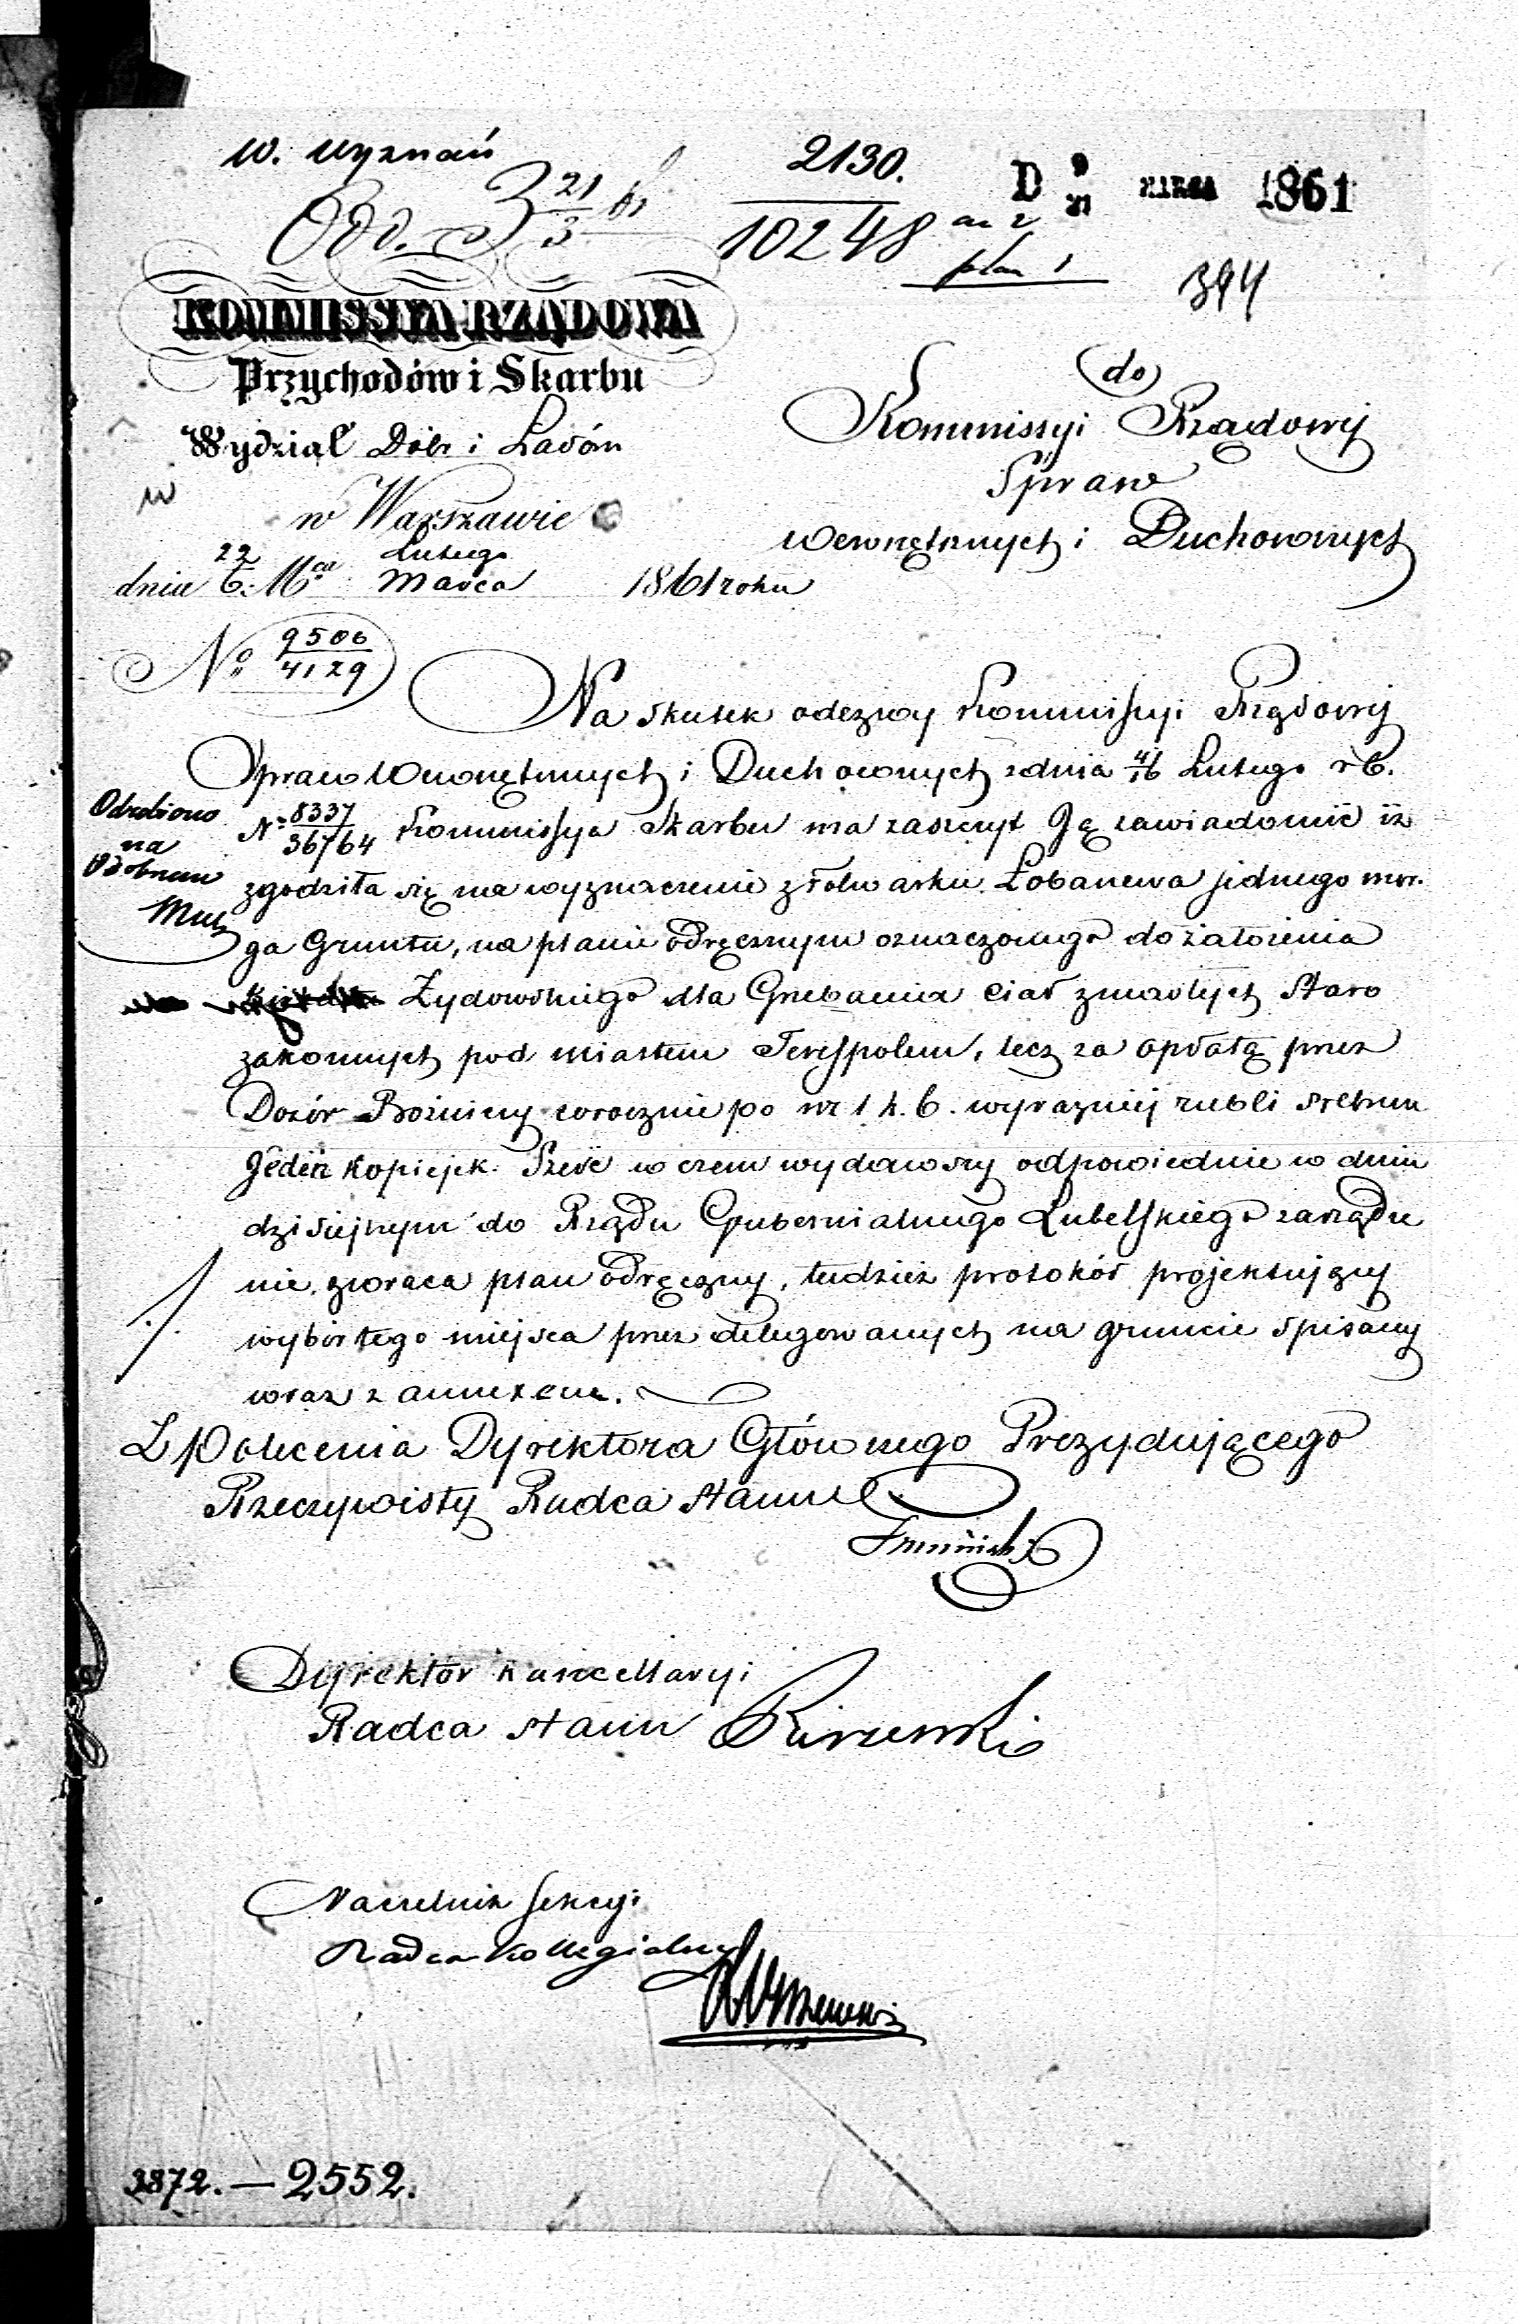 W. Wyznań
2130.
D 9/21 MARCA 1861
Odd. 3 21/3
10248 an 2
plan 1
394
KOMMISSYA RZĄDOWA
Przychodów i Skarbu
Wydział Dóbr i Lasów
w Warszawie
dnia 22 Lutego / 6 Mca Marca 1861 roku
No 9506/4129
do
Kommissyi Rządowej
Spraw
Wewnętrznych i Duchownych
Na skutek odezwy Kommissyi Rządowej
Spraw Wewnętrznych i Duchownych z dnia 4/16 Lutego r b.
No 8337/36764 Kommissya Skarbu ma zaszczyt Ją zawiadomić iż
zgodziła się na wyznaczenie z folwarku Łobaczewa jednego mor-
ga Gruntu, na planie odręcznym oznaczonego do założenia
Żydowskiego dla Grzebania ciał zmarłych Staro
zakonnych pod miastem Terespolem, lecz za opłatą przez
Dozór Bożniczy corocznie po rs 1 k. 6. wyraźniej rubli srebrem
Jeden Kopiejek Sześć w czem wydawszy odpowiednie w dniu
dzisiejszym do Rządu Gubernialnego Lubelskiego zarządze
nie, zwraca plan odręczny, tudzież protokół projektujący
wybór tego miejsca przez delegowanych na gruncie spisany
wraz z annexem.
Odrobiono
na
Osobnem
Z Polecenia Dyrektora Głównego Prezydującego
Rzeczywisty Radca Stanu
Dyrektor Kancellaryi
Radca Stanu
Naczelnik Sekcyi
Radca Kollegialny
3872. — 2552.